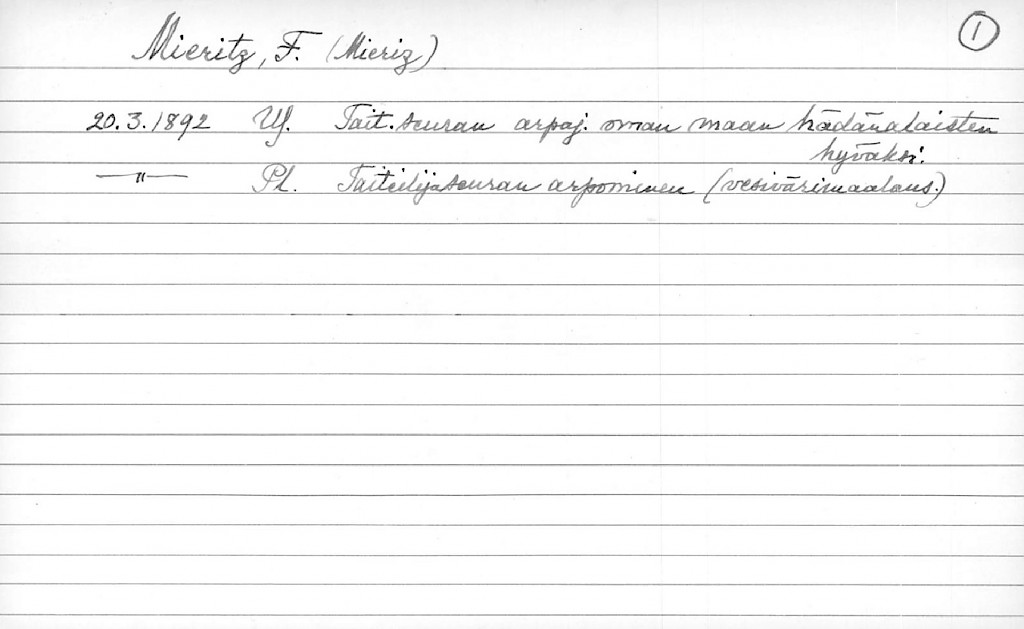 Mieritz, F. (Mieriz)
1
20.3.1892 Uf. Tait.seuran arpaj. oman maan hädänalaisten
hyväksi.
—"— Pl. Taiteilijaseuran arpominen (vesivärimaalaus.)